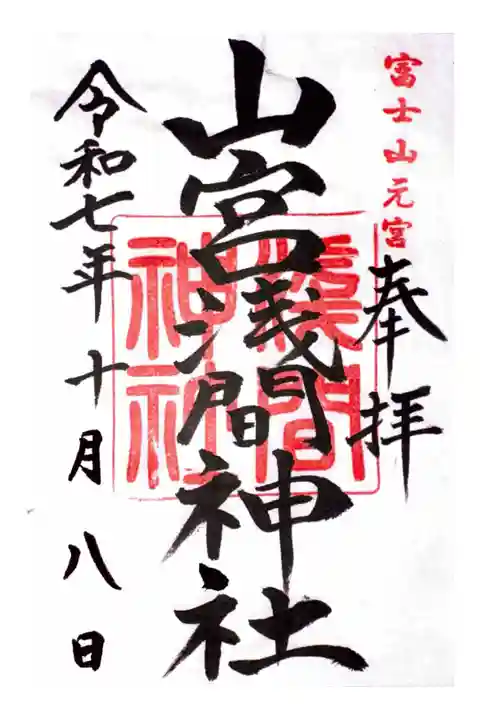 富士山元宮
奉拝
山宮浅間神社
淺間
神社
令和七年十月八日